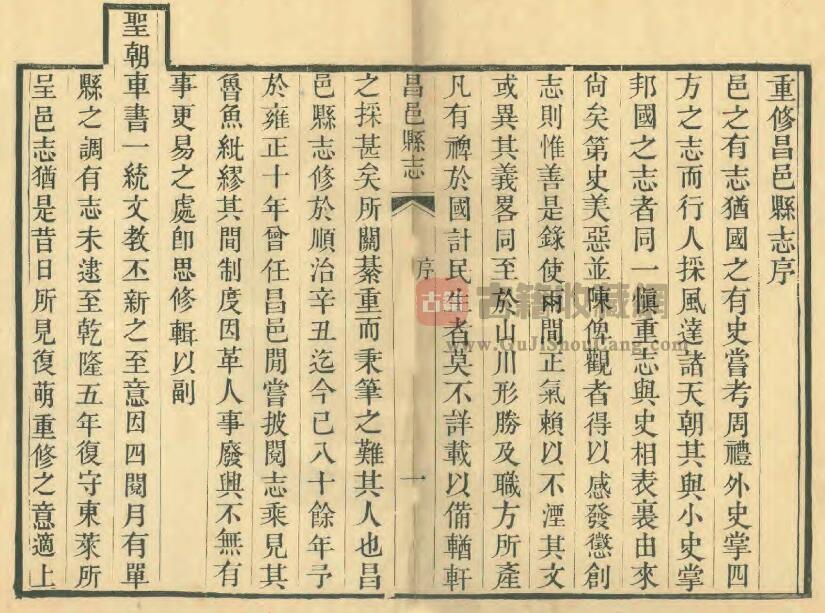 重修昌邑縣志序
邑之有志猶國之有史嘗考周禮外史掌四
方之志而行人採風達諸天朝其與小史掌
邦國之志者同一愼重志與史相表裏由來
尙矣第史美惡並陳俾觀者得以感發懲創
志則惟善是錄使兩間正氣賴以不湮其文
或異其義畧同至於山川形勝及職方所產
凡有裨於國計民生者莫不詳載以備輶軒
昌邑縣志 序 一
之採甚矣所關綦重而秉筆之難其人也昌
邑縣志修於順治辛丑迄今已八十餘年予
於雍正十年曾任昌邑閒嘗披閱志乘見其
魯魚紕繆其間制度因革人事廢興不無有
事更易之處卽思修輯以副
聖朝車書一統文教丕新之至意因四閱月有單
縣之調有志未逮至乾隆五年復守東萊所
呈邑志猶是昔日所見復萌重修之意適上
古籍
古籍收藏網
www.GuJiShouCang.com